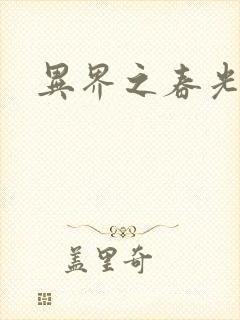 異界之春光
蓋里奇